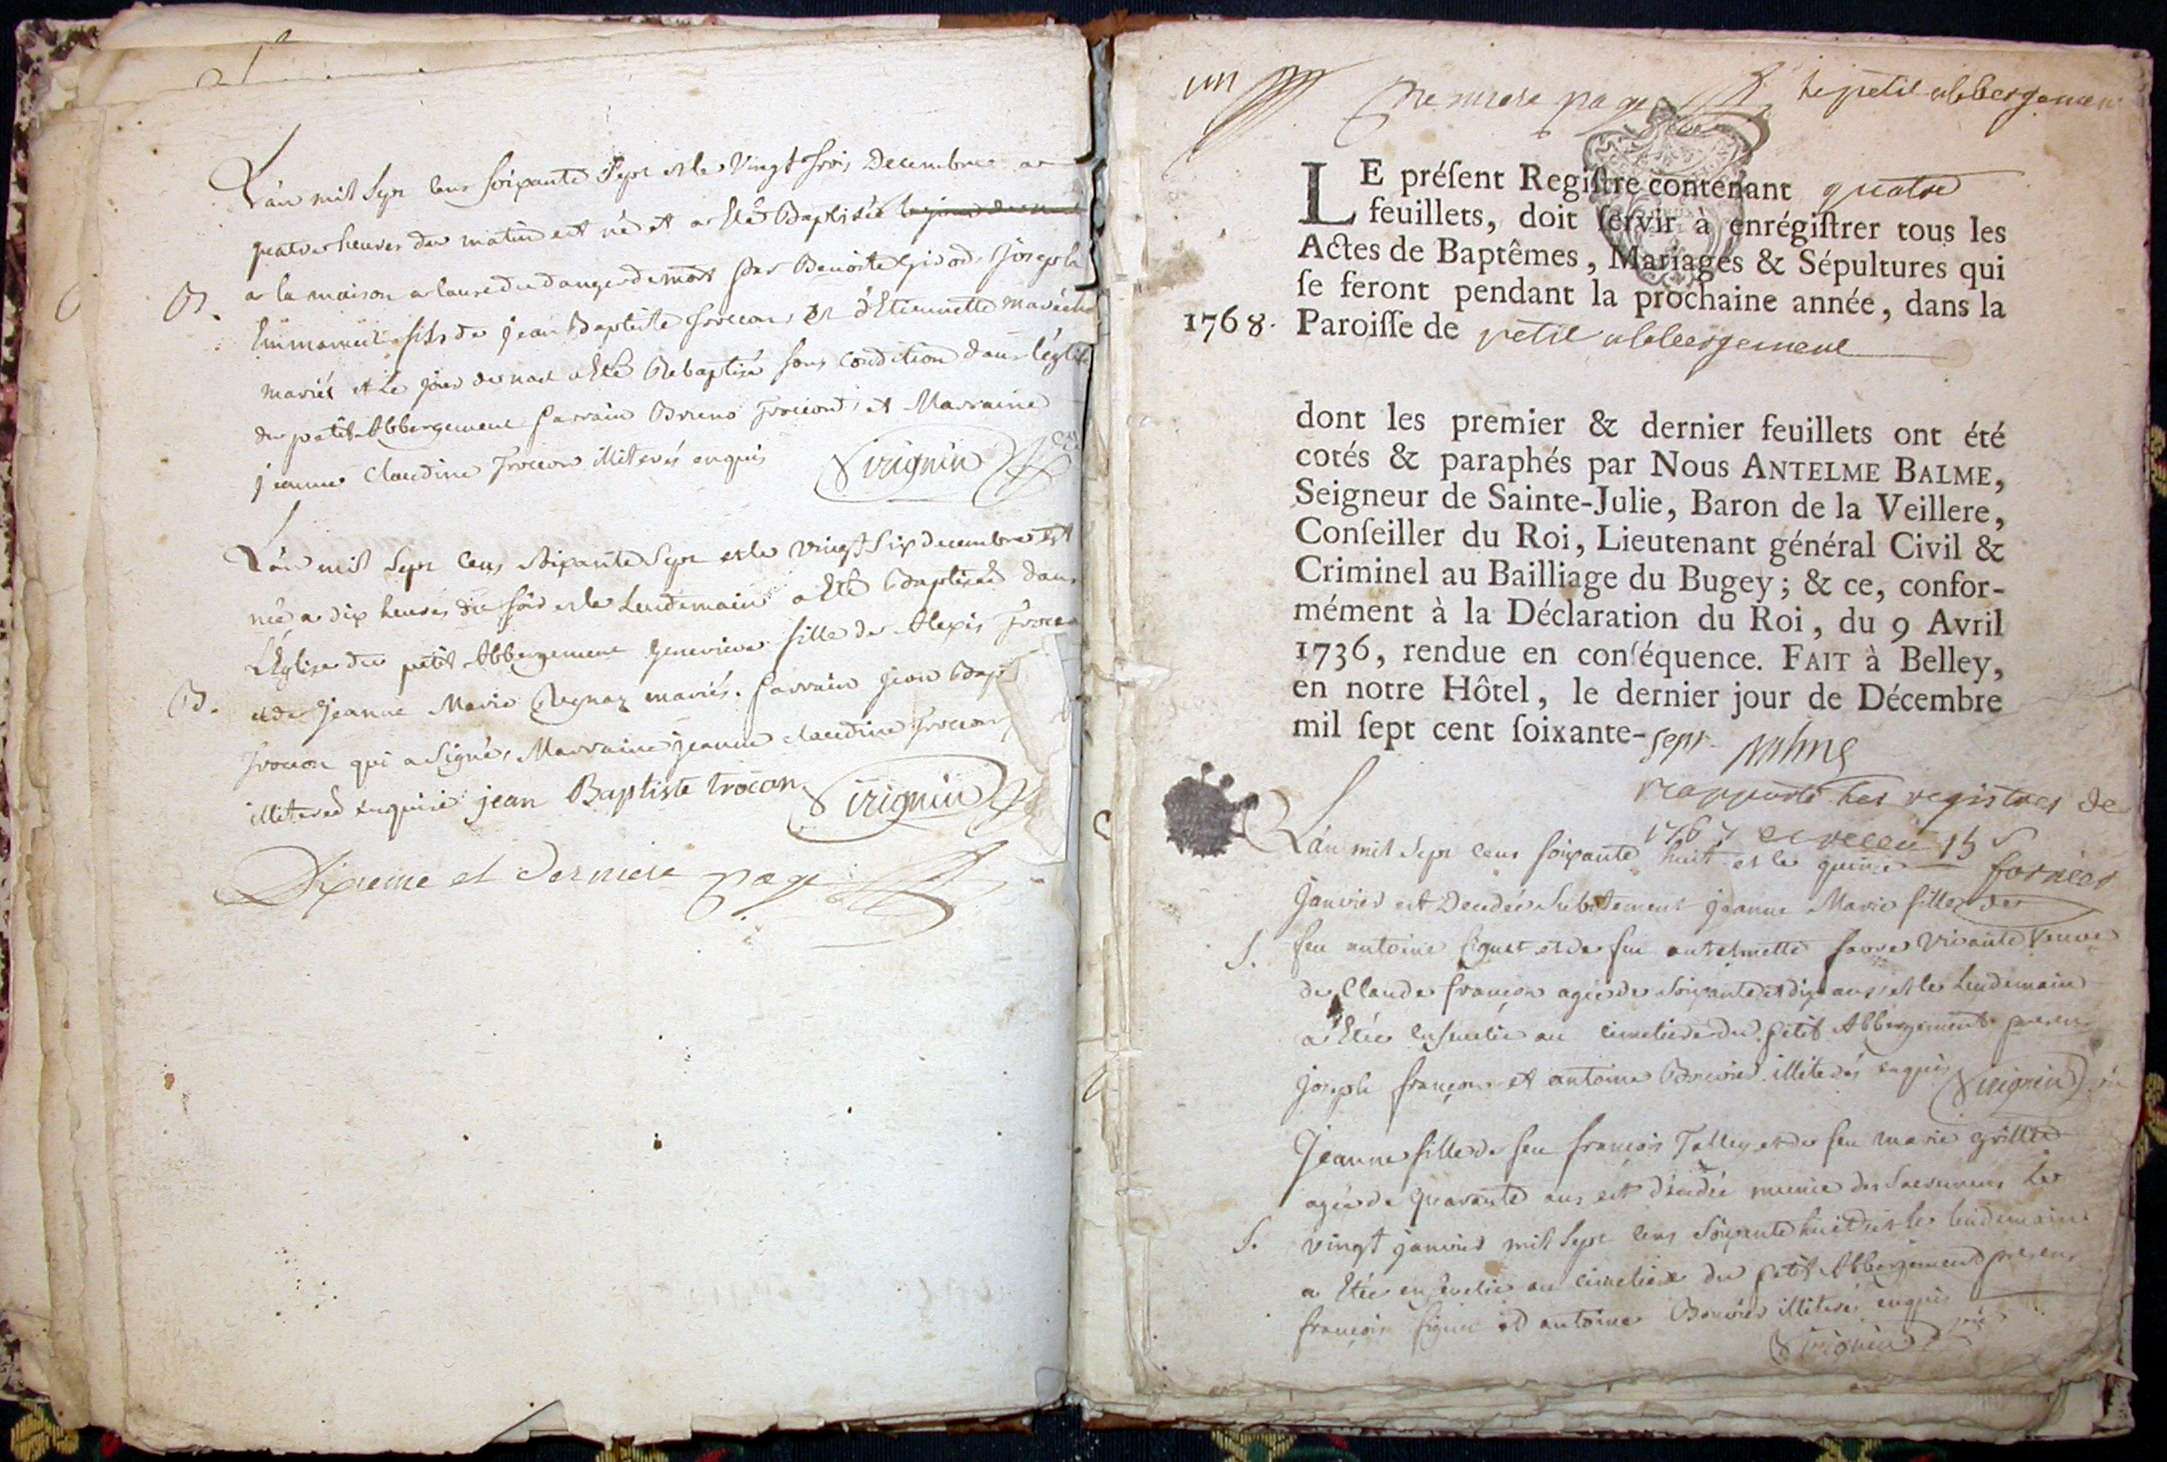 L'an mil sept cens soixante sept et le vingt trois Decembre a
quatre heures du matin est né et a eté Baptisé
a la maison a cause du danger de mort par Benoite Girod, Joseph
B.
Emmanuel fils de jean Baptiste Trocon et d'Etiennette
mariés et le jour de noel a eté Rebaptisé sous condition dans l'église
du petit Abbergement parrain Bruno Trocon, et Marraine
jeanne Claudine Trocon illiterés enquis Sirignin
L'an mil sept cens soixante sept et le vingt six decembre est
née a dix heures du soir et le lendemain a eté Baptisée dans
L'Eglise du petit Abbergement genevieve fille de Alexis Trocon
B.
et de jeanne Marie mariés. parrain jean Bapt
Trocon qui a signé, Marraine jeanne claudine Trocon
illiterée enquise jean Baptiste trocon Sirignin
Dixieme et Derniere page
un
Premiere page
Le petit abbergement
LE préſent Regiſtre contenant quatre
feuillets, doit ſervir à enrégiſtrer tous les
Actes de Baptêmes, Mariages & Sépultures qui
ſe feront pendant la prochaine année, dans la
1768. Paroiſſe de petit abbergement
dont les premier & dernier feuillets ont été
cotés & paraphés par Nous ANTELME BALME,
Seigneur de Sainte-Julie, Baron de la Veillere,
Conſeiller du Roi, Lieutenant général Civil &
Criminel au Bailliage du Bugey; & ce, confor-
mément à la Déclaration du Roi, du 9 Avril
1736, rendue en conſéquence. FAIT à Belley,
en notre Hôtel, le dernier jour de Décembre
mil ſept cent ſoixante-sept. Balme
rapporté les registres de
1767 et receu 15 s
L'an mil sept cens soixante huit et le quinze
janvier est Decedée Subitement jeanne Marie fille de
S.
feu antoine et de feu antelmette vivante veuve
de Claude françon agée de soixante et dix ans, et le lendemain
a Etée ensevelie au cimetiere du petit Abbergement presens
joseph françon et antoine Bouvier illiterés enquis Sirignin
Jeanne fille de feu françois Talley et de feu marie
agée de quarante ans est décedée munie des sacremens le
S.
vingt janvier mil sept cens soixante huit et le lendemain
a Etée ensevelie au cimetiere du petit Abbergement presens
françois et antoine Bouvier illiterés enquis
Sirignin